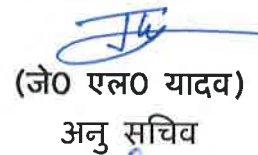 (जे0 एल0 यादव)
अनु सचिव